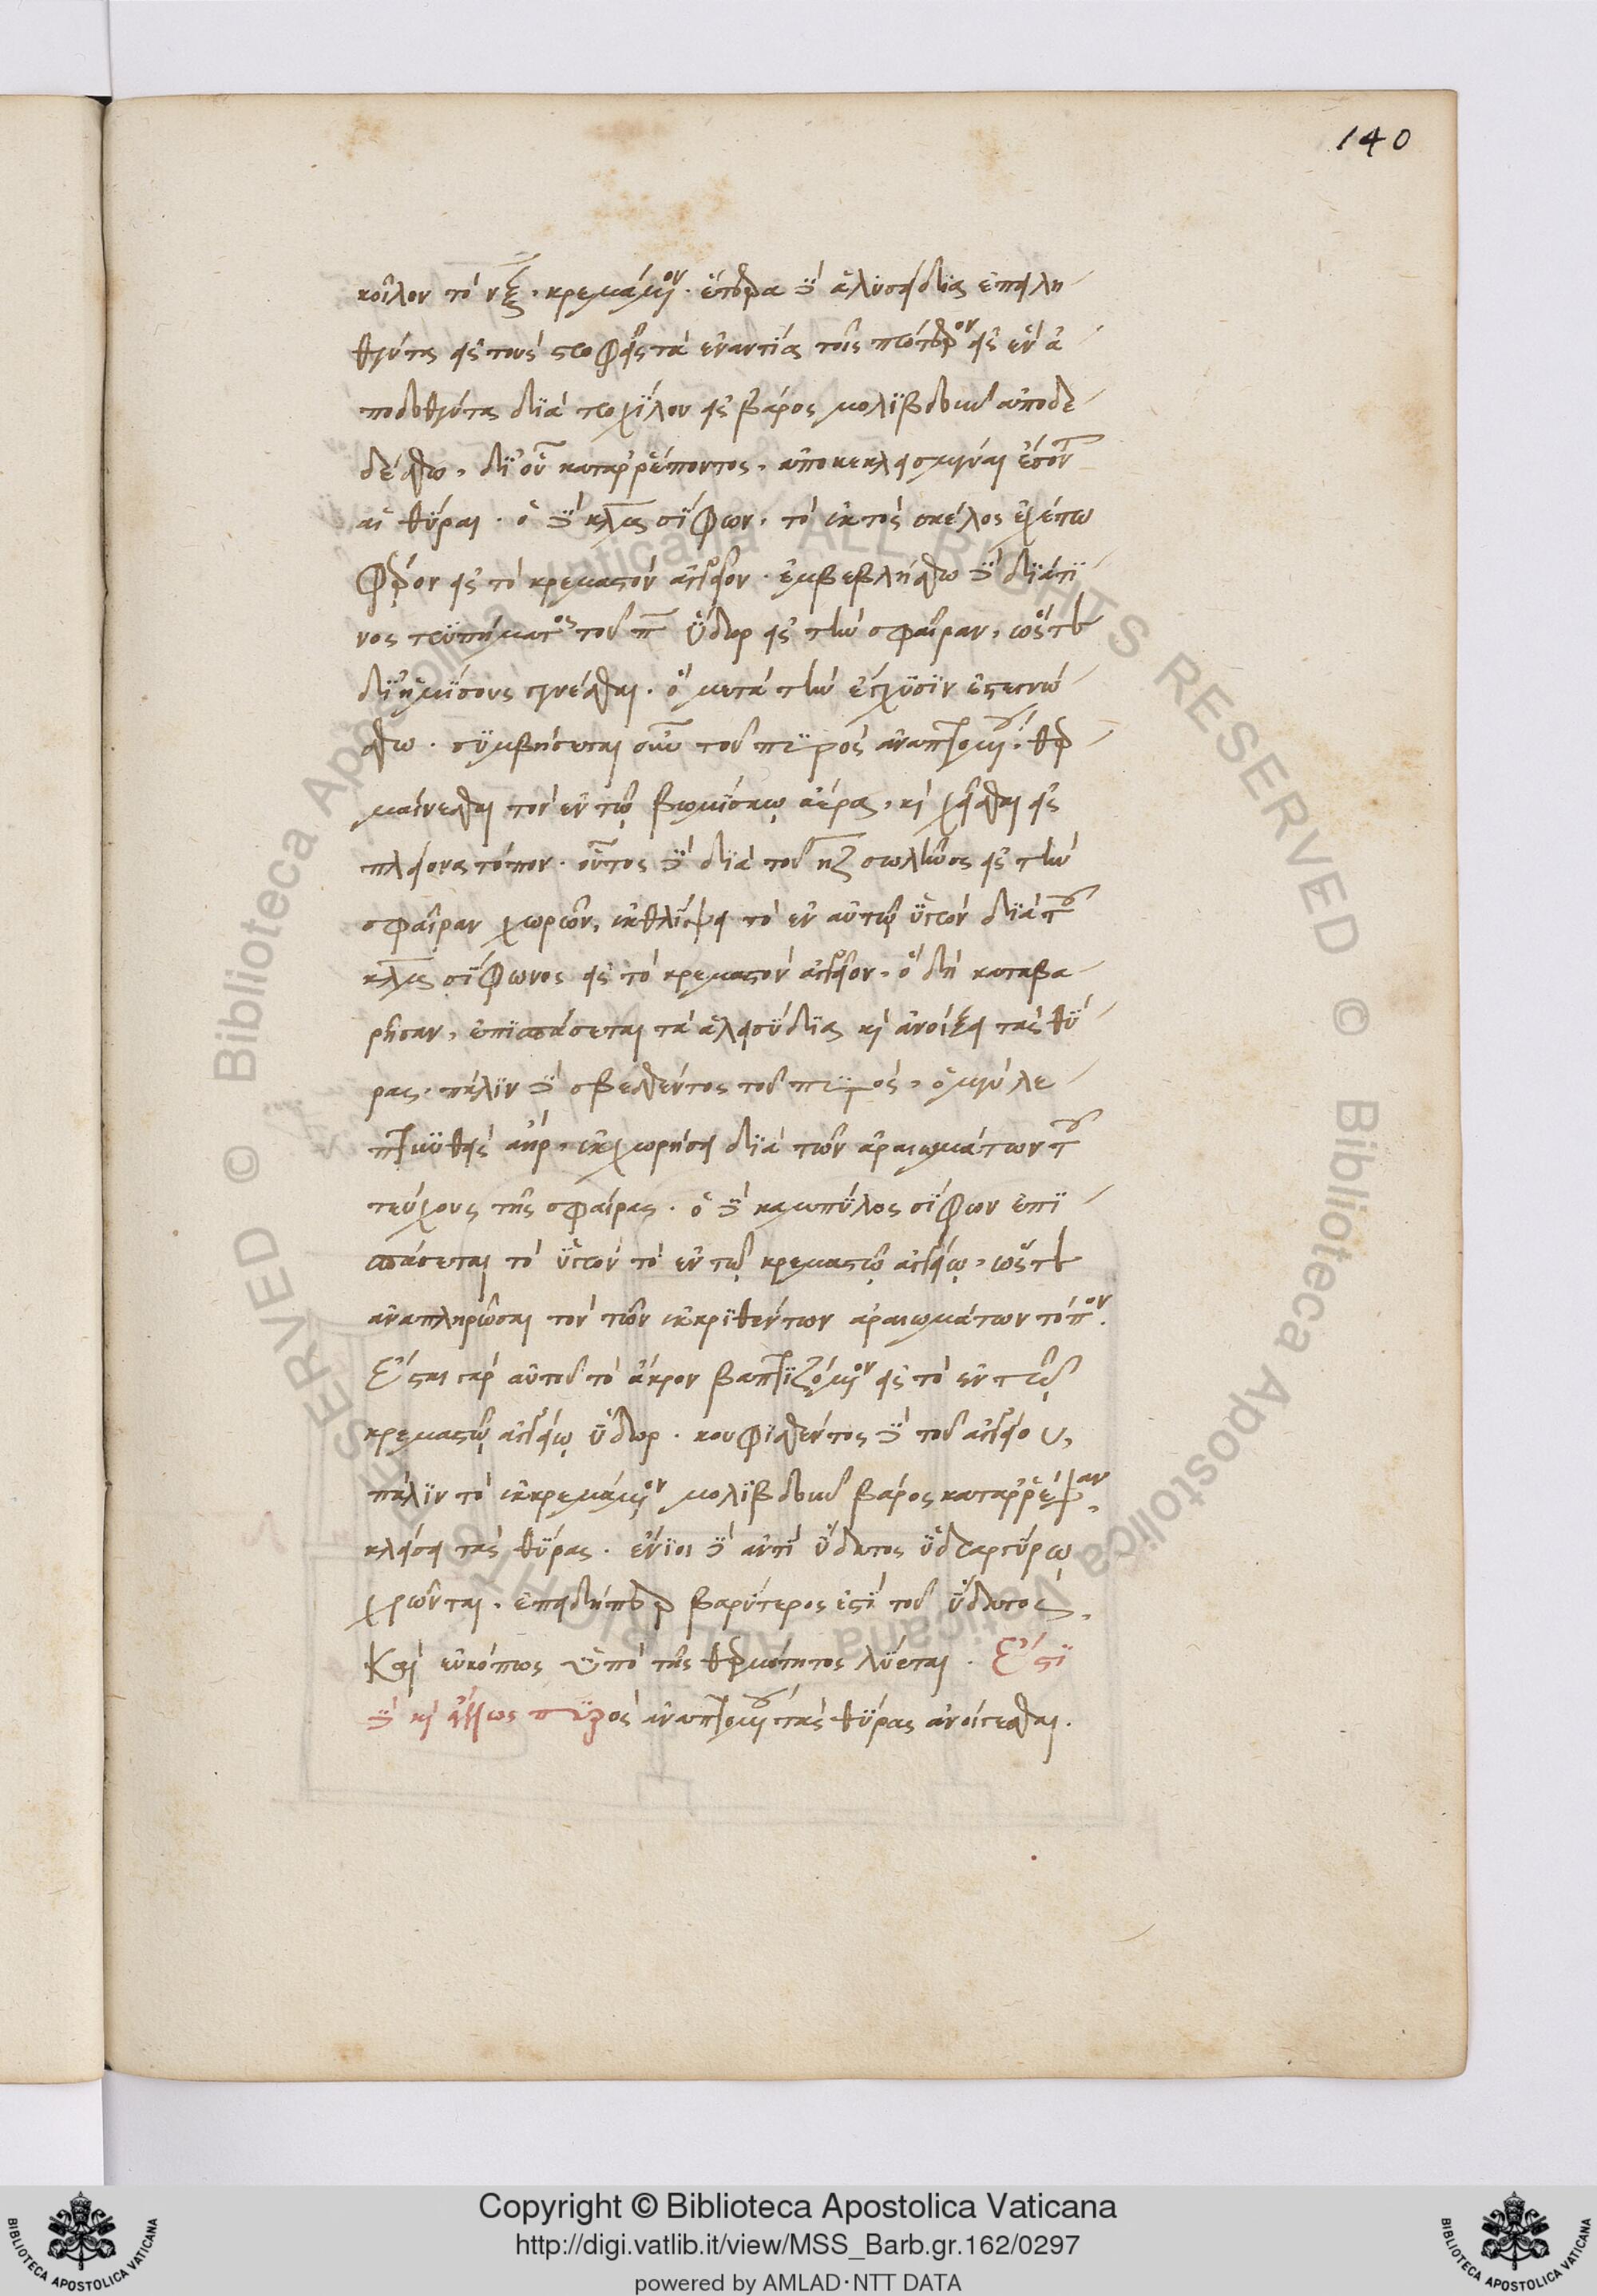 140
κοῖλον τὸ νξ. κρεμάμενον. ἕτερα δὲ ἁλυσείδια ἐπειλη
θέντα εἰς τοὺς στροφεῖς τὰ ἐναντία τοῖς πρότερον εἰς ἓν ἀ
ποδοθέντα διὰ τροχίλου εἰς βάρος μολιβδοῦν ἀποδε
δέσθω, δι' οὗ καταρρέποντος, ἀποκεκλεισμέναι ἔσον
αἱ θύραι. ὁ δὲ κλμ σίφων, τὸ ἐκτὸς σκέλος ἐχέτω
φέρον εἰς τὸ κρεμαστὸν ἀγγεῖον. ἐμβεβλήσθω δὲ διά τι
νος τρυπήματος τοῦ π ὕδωρ εἰς τὴν σφαῖραν, ὥστε
δι' ἡμίσους γενέσθαι. ὃ μετὰ τὴν ἔγχυσιν ἐστεγνώ
σθω. συμβήσεται οὖν τοῦ πυρὸς ἀναπτομένου θερ
μαίνεσθαι τὸν ἐν τῷ βωμίσκῳ ἀέρα, καὶ χεῖσθαι εἰς
πλείονα τόπον. οὗτος δὲ διὰ τοῦ ηζ σωλῆνος εἰς τὴν
σφαῖραν χωρῶν, ἐκθλίψει τὸ ἐν αὐτῷ ὑγρὸν διὰ τοῦ
κλμ σίφωνος εἰς τὸ κρεμαστὸν ἀγγεῖον. ὃ δὴ καταβα
ρῆσαν, ἐπισπάσεται τὰ ἁλεισύδια καὶ ἀνοίξει τὰς θύ
ρας. πάλιν δὲ σβεσθέντος τοῦ πυρὸς, ὁ μὲν λε
πτυνθεὶς ἀὴρ, ἐκχωρήσει διὰ τῶν ἀραιωμάτων τοῦ
τεύχους τῆς σφαίρας. ὁ δὲ καμπύλος σίφων ἐπι
σπάσεται τὸ ὑγρὸν τὸ ἐν τῷ κρεμαστῷ ἀγγείῳ, ὥστε
ἀναπληρῶσαι τὸν τῶν ἐκκριθέντων ἀραιωμάτων τόπον.
Ἔσται γὰρ αὐτοῦ τὸ ἄκρον βαπτιζόμενον εἰς τὸ ἐν τῷ
κρεμαστῷ ἀγγείῳ ὕδωρ. κουφισθέντος δὲ τοῦ ἀγγείου,
πάλιν τὸ ἐκκρεμάμενον μολιβδοῦν βάρος καταρρέψαν,
κλείσει τὰς θύρας. ἔνιοι δὲ ἀντὶ ὕδατος ὑδραργύρῳ
χρῶνται. ἐπειδήπερ βαρύτερός ἐστι τοῦ ὕδατος,
Καὶ εὐκόπως ὑπὸ τῆς θερμότητος λύεται. Ἔστι
δὲ καὶ ἄλλως πυρὸς ἀναπτομένου τὰς θύρας ἀνοίγεσθαι.
Copyright © Biblioteca Apostolica Vaticana
http://digi.vatlib.it/view/MSS_Barb.gr.162/0297
powered by AMLAD·NTT DATA